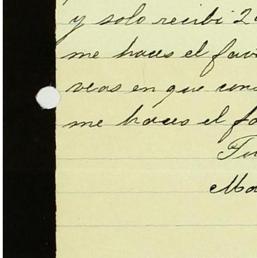 y solo recibi 2
me haces el favo
veas en que con
me haces el fa